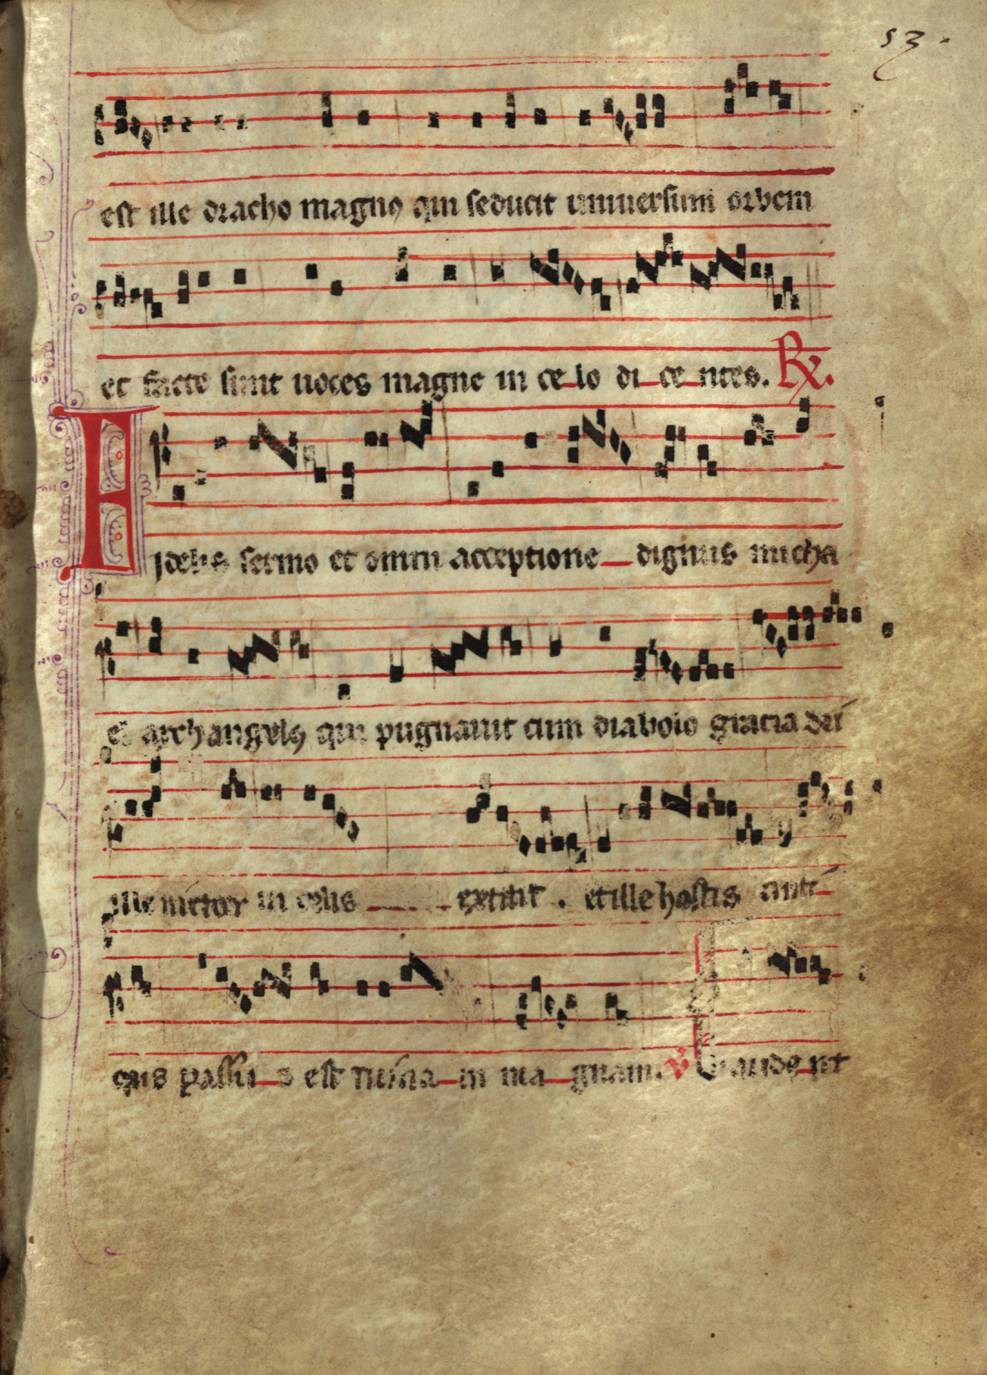 53.
est ille dracho magnꝯ qui seducit uniuersum orbem
et facte sunt uoces magne in ce lo di ce ntes. ℟.
Fidelis sermo et omni acceptione dignus micha
el archangelꝯ qui pugnauit cum diabolo gracia dei
ille uictor in celis extitit. et ille hostis anti
qus passu s est ruina in ma gnam. ℣ Gaudent